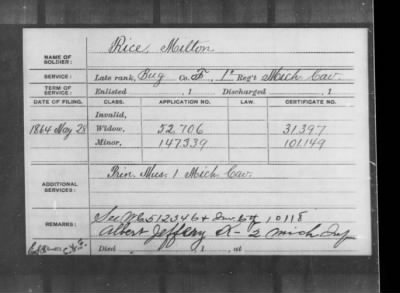 NAME OF SOLDIER: Rice, Milton
SERVICE: Late rank, Bug Co. F, 1st Reg't Mich Cav.
TERM OF SERVICE: Enlisted , 1 Discharged , 1
DATE OF FILING. CLASS. APPLICATION NO. LAW. CERTIFICATE NO.
Invalid,
1864 May 28 Widow, 52.706 31.397
Minor, 147339 101149
ADDITIONAL SERVICES: Prin. Mus. 1 Mich Cav.
REMARKS: See WC 512346 &
10118
Albert Jeffery K - 2 Mich Inf
Died , 1 , at